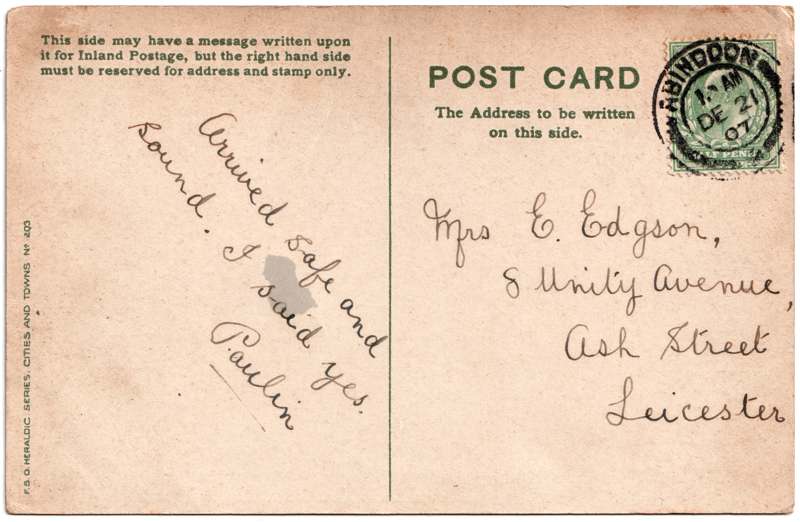 This side may have a message written upon
it for Inland Postage, but the right hand side
must be reserved for address and stamp only.
Arrived safe and
sound. I said yes.
Paulin
F.S.O. HERALDIC SERIES. CITIES AND TOWNS Nº 203
POST CARD
The Address to be written
on this side.
ABINGDON
AM
DE 21
07
Mrs E. Edgson,
8 Unity Avenue,
Ash Street
Leicester